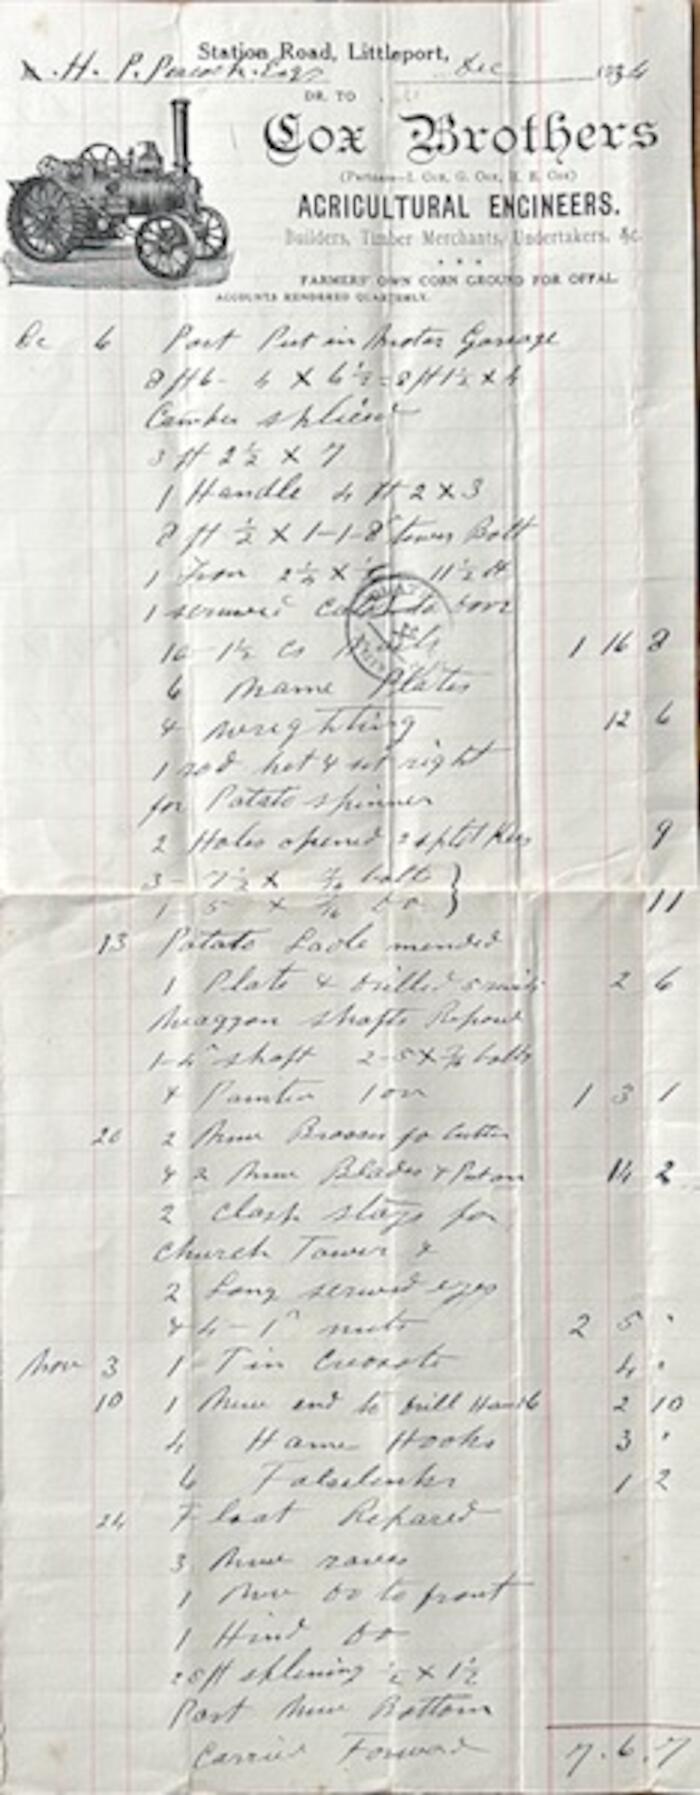 Station Road, Littleport,
H. P. Peacock. Esq Dec 1934
DR. TO
Cox Brothers
(Partners—I. Cox, G. Cox, H. E. Cox)
AGRICULTURAL ENGINEERS.
Builders, Timber Merchants, Undertakers, &c.
FARMERS' OWN CORN GROUND FOR OFFAL.
ACCOUNTS RENDERED QUARTERLY.
6 Post Put in Motor Garage
8 ft 6 - 4 × 6½ = 8 ft 1½ × 4
spliced
3 ft 2½ × 7
1 Handle 4 ft 2 × 3
8 ft ½ × 1 - 1-8" tower Bolt
1 Iron 2¼ × 11½ ft
1 screwed to
16 1½ cs 1 16 8
6 Name Plates
& wreighting 12 6
1 rod het & set right
for Potato spinner
2 Holes opened 2 split Kees 9
3 - 7½ × bolts }
1 - 5 × do } 11
13 Potato Ladle mended
1 Plate & drilled 5 2 6
Waggon shafts Repard
1-4" shaft 2-5 × bolts
& Painted 1 on 1 3 1
20 2 New fo Cutter
& 2 New Blades & Put on 14 2
2 Clasp stays for
Church Tower &
2 Long screwed eyes
& 4 - 1" nuts 2 5 "
Nov 3 1 Tin Creosote 4 "
10 1 New end to drill Handle 2 10
4 Hame Hooks 3 "
6 Falselinks 1 2
24 Float Repared
3 New raves
1 New do to front
1 Hind do
25 ft splining ½ × 1½
Part New Bottom
Carried Forward 7 . 6 . 7